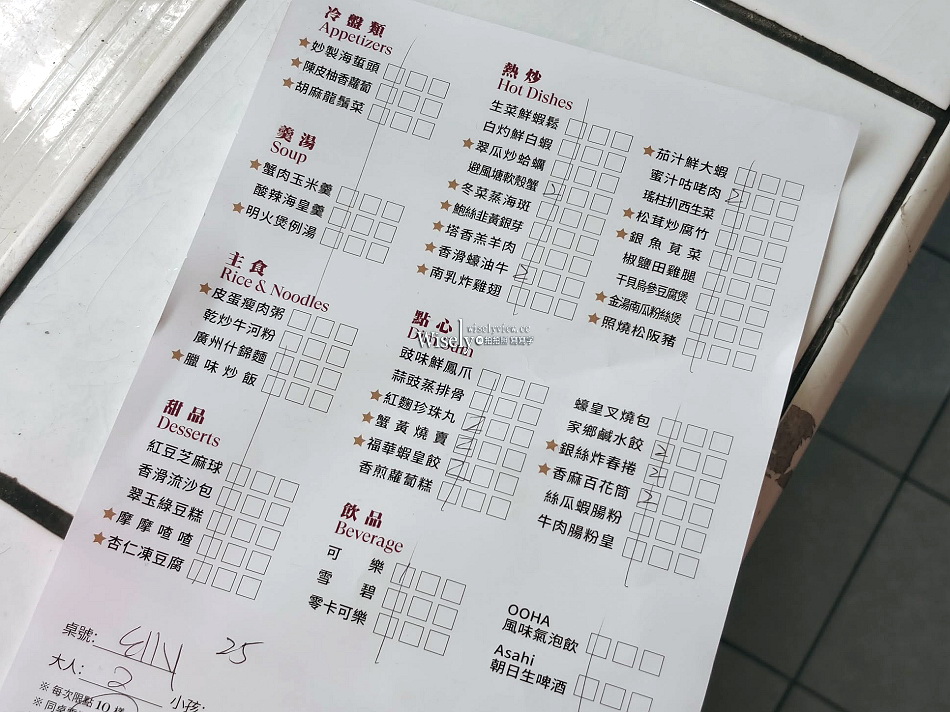 冷盤類
Appetizers
★妙製海蜇頭
★陳皮柚香蘿蔔
★胡麻龍鬚菜
羹湯
Soup
★蟹肉玉米羹
酸辣海皇羹
★明火煲例湯
主食
Rice & Noodles
★皮蛋瘦肉粥
乾炒牛河粉
廣州什錦麵
★臘味炒飯
甜品
Desserts
紅豆芝麻球
香滑流沙包
翠玉綠豆糕
★摩摩喳喳
★杏仁凍豆腐
熱炒
Hot Dishes
生菜鮮蝦鬆
白灼鮮白蝦
★翠瓜炒蛤蠣
避風塘軟殼蟹 2
★冬菜蒸海斑
★鮑絲韭黃銀芽
★塔香羔羊肉
★香滑蠔油牛 2
★南乳炸雞翅
★茄汁鮮大蝦
蜜汁咕咾肉 2
瑤柱扒西生菜
★松茸炒腐竹
★銀魚莧菜
椒鹽田雞腿
干貝烏參豆腐煲
★金湯南瓜粉絲煲
★照燒松阪豬
點心
wiselyview.cc
Wisely
豉味鮮鳳爪
蒜豉蒸排骨
★紅麴珍珠丸
★蟹黃燒賣
★福華蝦皇餃
香煎蘿蔔糕
蠔皇叉燒包
家鄉鹹水餃 2
★銀絲炸春捲 2
★香麻百花筒 2
絲瓜蝦腸粉
牛肉腸粉皇
飲品
Beverage
可樂
雪碧
零卡可樂
OOHA
風味氣泡飲
Asahi
朝日生啤酒
桌號: 25
大人: 2 小孩:
※ 每次限點 10 樣
※ 同桌